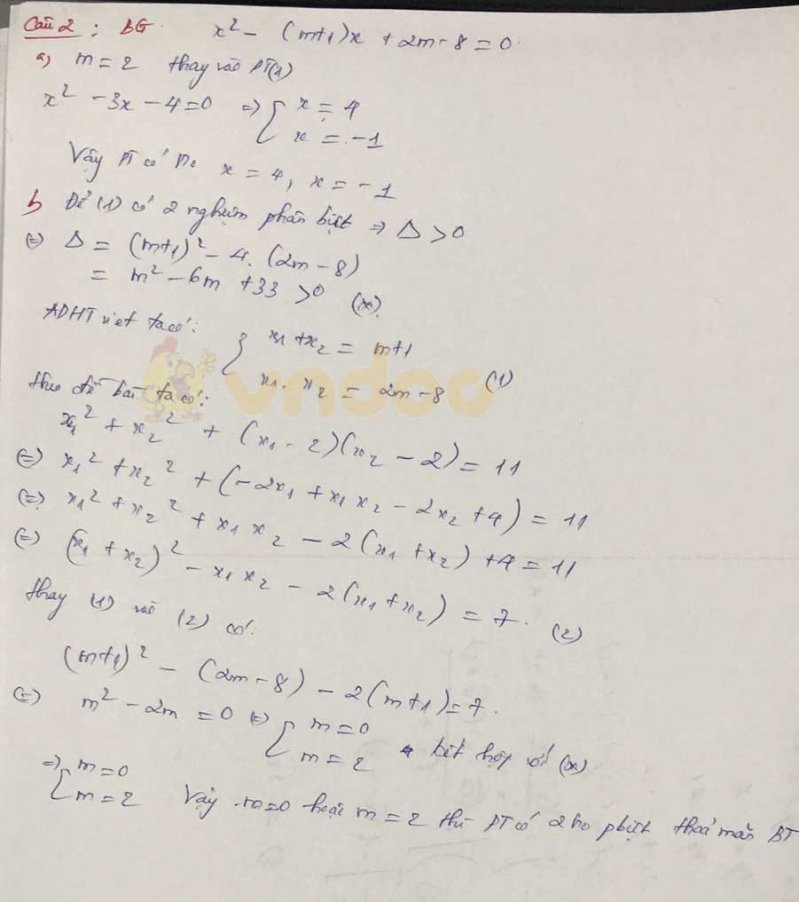 Câu 2 : BG x² - (m+1)x + 2m - 8 = 0
a, m = 2 thay vào PT(1)
x² - 3x - 4 = 0 => [ x = 4
x = -1
Vậy PT có No x = 4, x = -1
b Để (1) có 2 nghiệm phân biệt => Δ > 0
(=) Δ = (m+1)² - 4.(2m - 8)
= m² - 6m + 33 > 0 (*)
ADHT viet ta có: { x₁ + x₂ = m+1
x₁. x₂ = 2m - 8 (1)
theo đề bài ta có:
vndoc
x₁² + x₂² + (x₁ - 2)(x₂ - 2) = 11
(=) x₁² + x₂² + (-2x₁ + x₁x₂ - 2x₂ + 4) = 11
(=) x₁² + x₂² + x₁x₂ - 2(x₁ + x₂) + 4 = 11
(=) (x₁ + x₂)² - x₁x₂ - 2(x₁ + x₂) = 7. (2)
thay (1) vào (2) có:
(m+1)² - (2m - 8) - 2(m+1) = 7.
(=) m² - 2m = 0 (=) [ m = 0
m = 2 kết hợp với (*)
=> [ m = 0
m = 2 Vậy m = 0 hoặc m = 2 thì PT có 2 no pbiệt thoả mãn BT